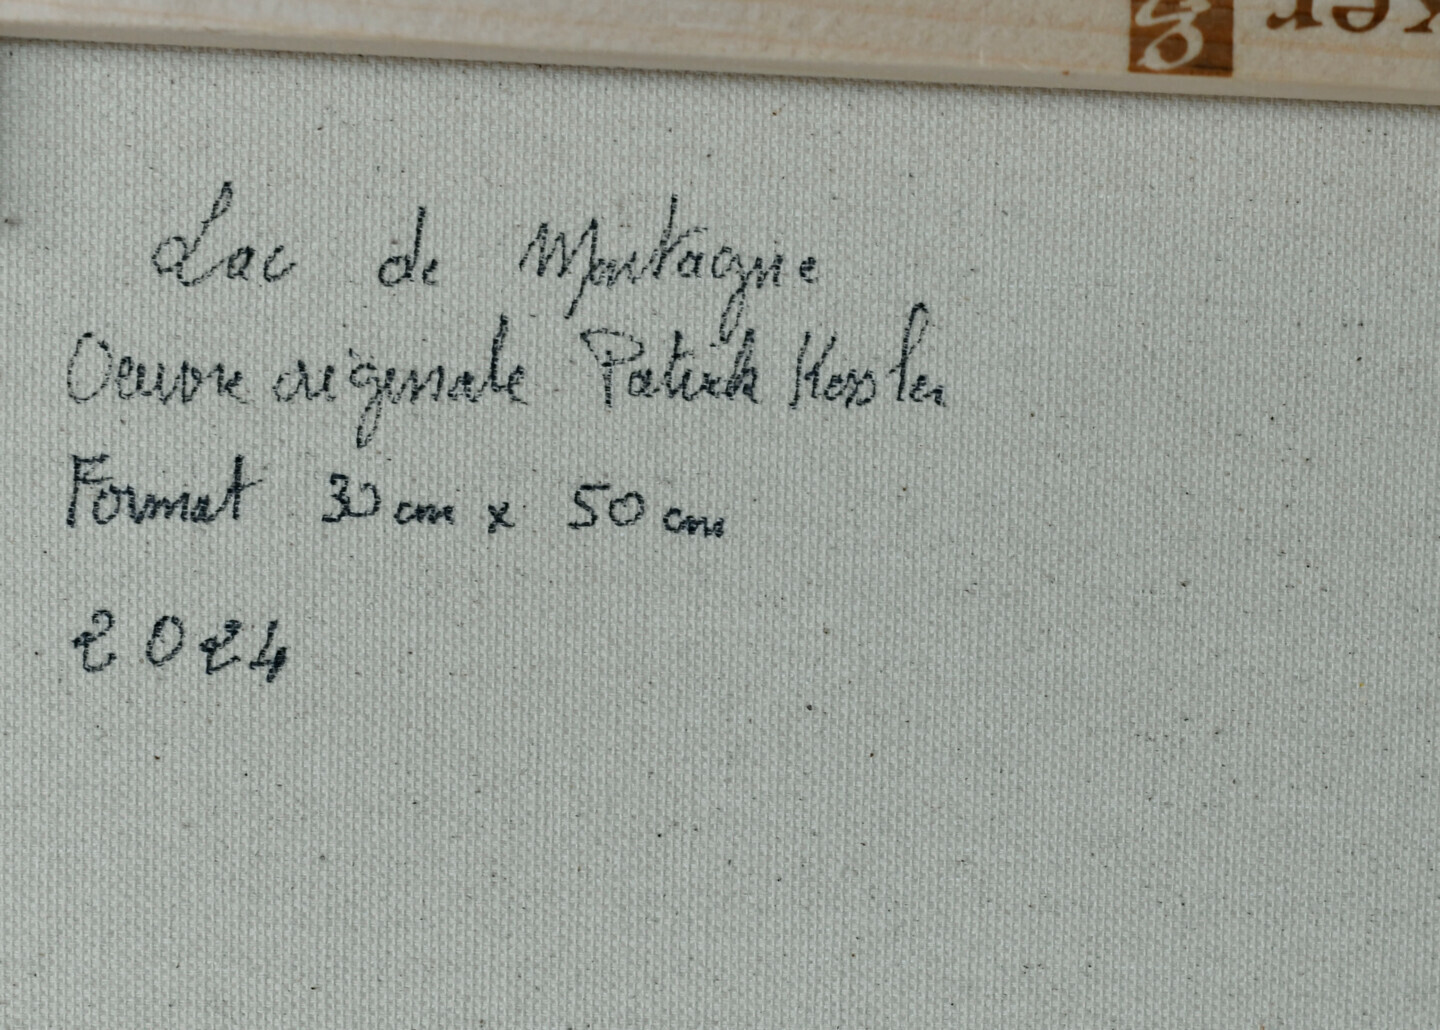 Lac de Montagne
Oeuvre originale Patrick Kessler
Format 30 cm x 50 cm
2024